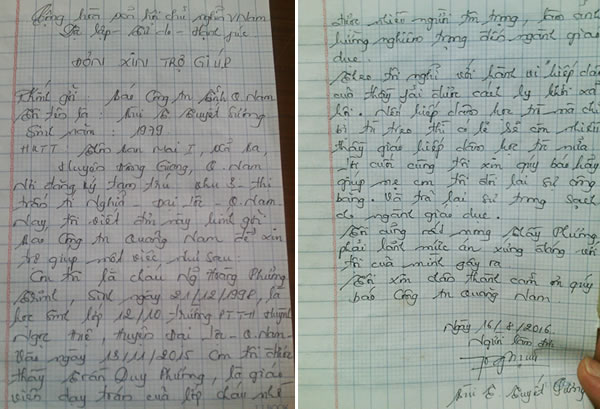 Cộng hòa xã hội chủ nghĩa V.Nam
Độc lập - Tự do - Hạnh phúc
ĐƠN XIN TRỢ GIÚP
Kính gửi: Báo Công an tỉnh Q. Nam
Tôi tên là: Bùi Thị Tuyết Sương
Sinh năm: 1979
HKTT: Thôn Ban Mai I, xã Ba,
Huyện Đông Giang, Q. Nam
Nơi đăng ký tạm trú khu 3 - thị
trấn Ái Nghĩa - Đại Lộc - Q. Nam
Nay, tôi viết đơn này kính gởi
Báo Công an Quảng Nam để xin
trợ giúp một việc như sau:
Con tôi là cháu Hoàng Phương
sinh ngày 21/12/1998, là
học sinh lớp 12/10 trường PTTH Huỳnh
Ngọc Huệ, huyện Đại Lộc - Q. Nam.
Vào ngày 13/11/2015 con tôi
thầy Trần Quy Phương, là giáo
viên dạy toán của lớp cháu
được nhiều người tôn trọng, làm ảnh
hưởng nghiêm trọng đến ngành giáo
dục.
Theo tôi nghĩ với hành vi hiếp dâm
của thầy phải được cách ly khỏi xã
hội. Nếu hiếp dâm học trò mà chỉ
bị tù treo thì có lẽ sẽ còn nhiều
thầy giáo hiếp dâm học trò nữa.
cuối cùng tôi xin quý báo hãy
giúp mẹ con tôi đòi lại sự công
bằng. Và trả lại sự trong sạch
cho ngành giáo dục.
Tôi cũng rất mong thầy Phương
phải lãnh mức án xứng đáng với
tội của mình gây ra
Tôi xin chân thành cảm ơn quý
báo Công an Quảng Nam
Ngày 16/8/2016
Người làm đơn
Bùi T. Tuyết Sương